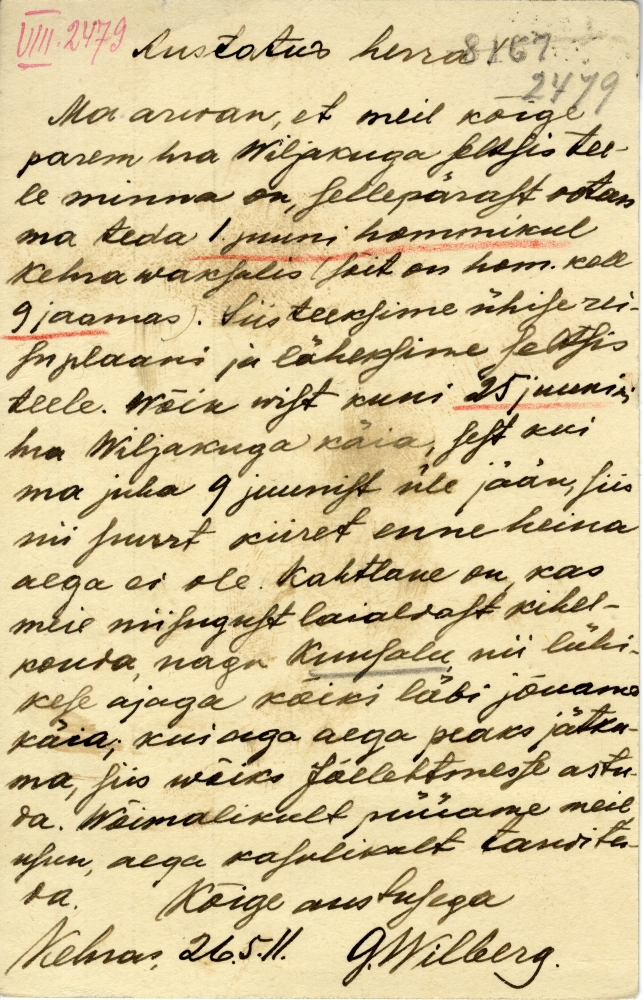 VIII. 2479
Austatud herra
8167
2479
Ma arwan, et meil kõige
parem hra Wiljakuga seltsis tee-
le minna on, sellepärast ootan
ma teda 1. juuni hommikul
Kehra waksalis (sõit on hom. kell
9 jaamas). Siis teeksime ühise rei-
suplaani ja läheksime seltsis
teele. Wõin wist kuni 25 juunini
hra Wiljakuga käia, sest kui
ma juba 9 juunist üle jään, siis
nii suurt kiiret enne heina
aega ei ole. Kahtlane on, kas
meie niisugust laialdast kihel-
konda, nagu Kuusalu, nii lühi-
kese ajaga kõiki läbi jõuame
käia; kui aga aega peaks jätku-
ma, siis wõiks Jõelehtmesse astu-
da. Wõimalikult püüame meie
usun, aega kasulikult tarwita-
da. Kõige austusega
Kehras, 26.5.11. G. Wilberg.